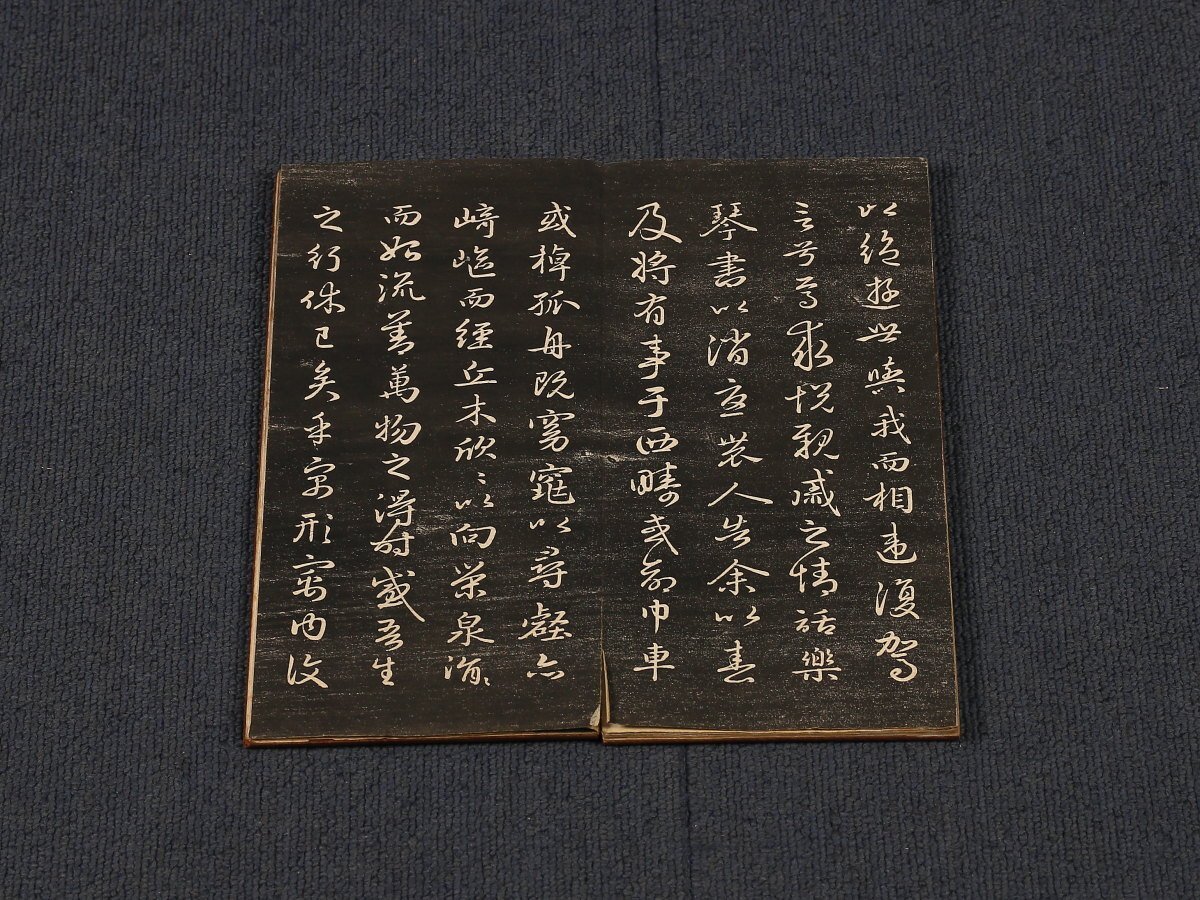 以絕遊世與我而相違復駕
言兮焉求悅親戚之情話樂
琴書以消憂農人告余以春
及將有事于西疇或命巾車
或棹孤舟既窈窕以尋壑亦
崎嶇而經丘木欣〻以向榮泉涓〻
而始流善萬物之得時感吾生
之行休已矣乎寓形寓内復